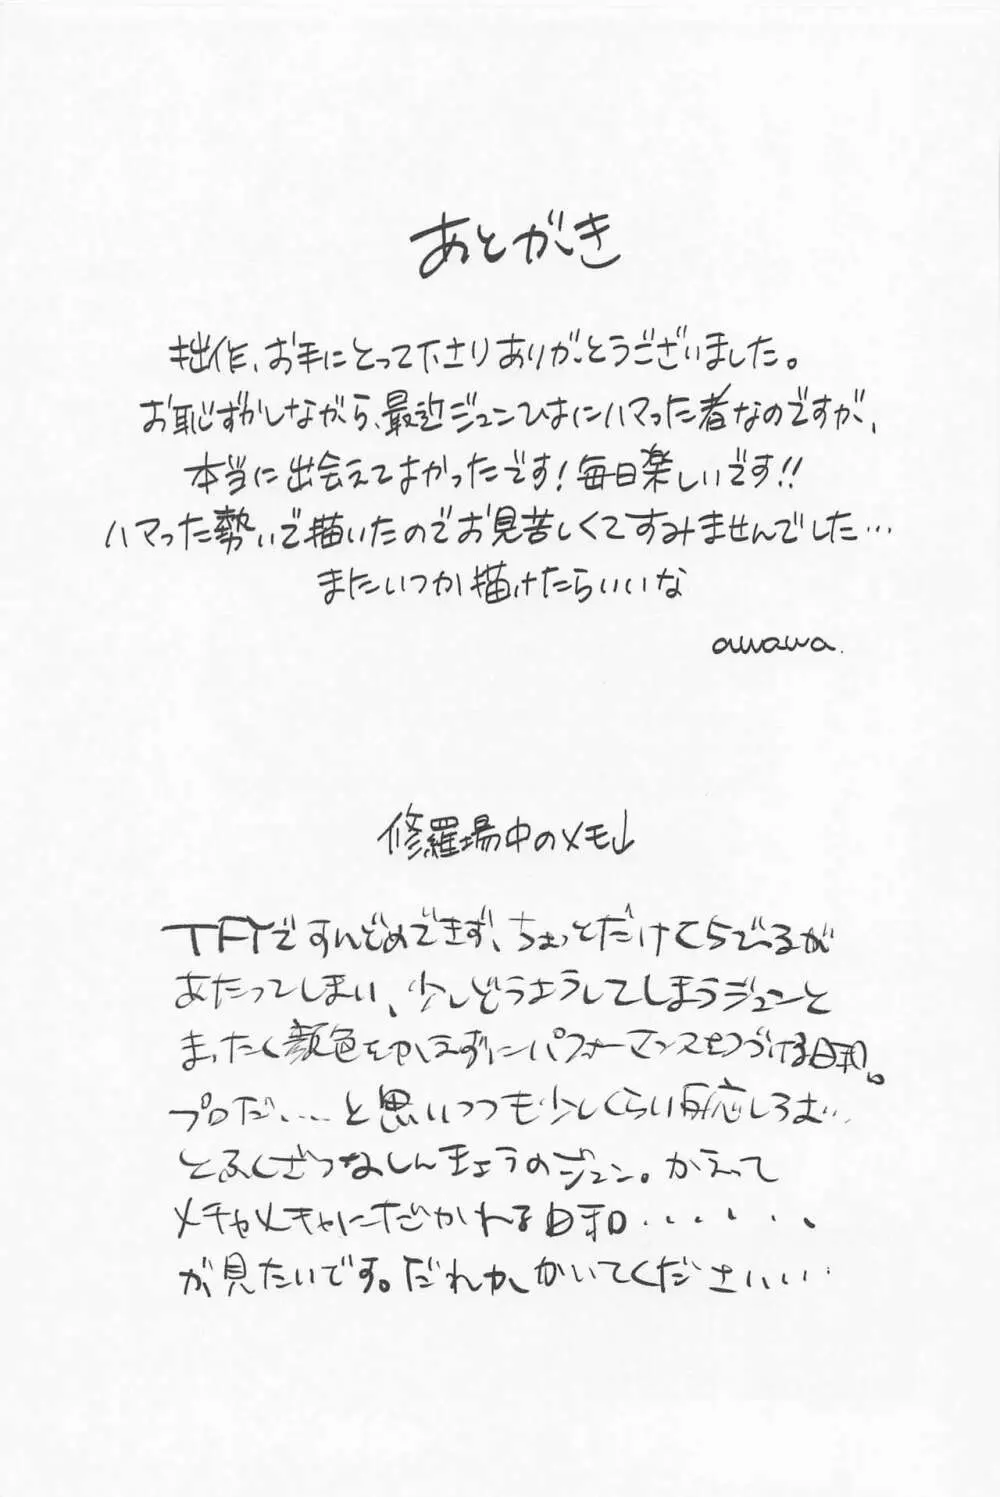 あとがき
拙作、お手にとって下さりありがとうございました。
お恥ずかしながら、最近ジュンひよにハマった者なのですが、
本当に出会えてよかったです！毎日楽しいです！！
ハマった勢いで描いたのでお見苦しくてすみませんでした…
またいつか描けたらいいな
awawa.
修羅場中のメモ↓
TFYですんどめできず、ちょっとだけくちびるが
あたってしまい、少しどうようしてしまうジュンと
まったく顔色をかえずにパフォーマンスをつづける日和。
プロだ....と思いつつも少しくらい反応しろよ…
とふくざつなしんきょうのジュン。かえって
メチャメチャにだかれる日和・・・・・・・
が見たいです。だれか かいてください…